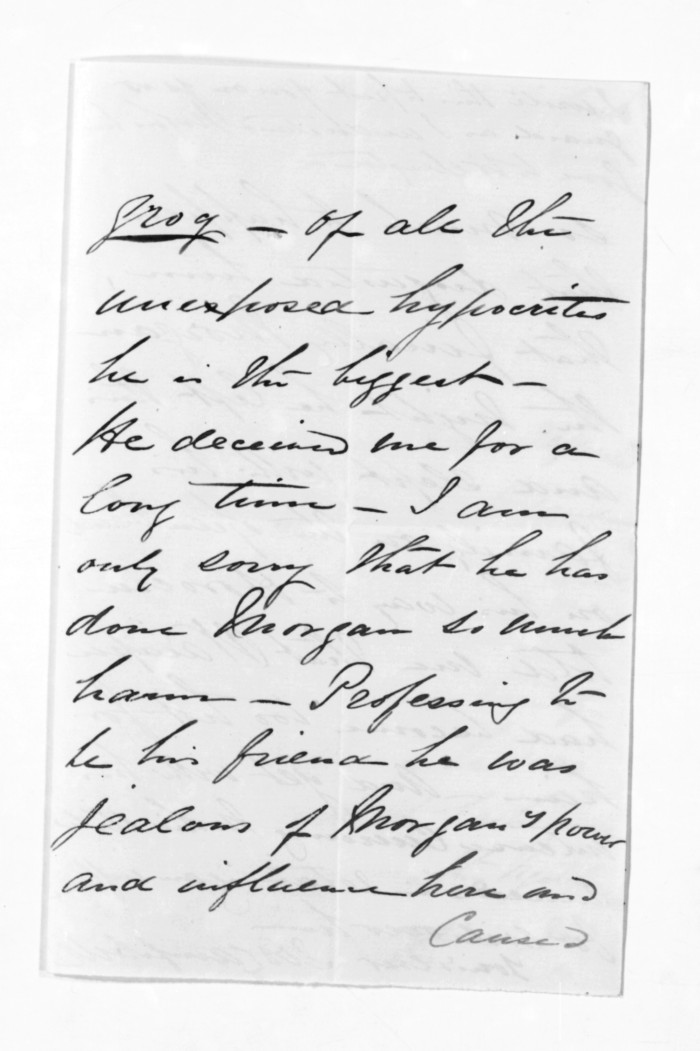 grog — of all the
unexposed hypocrites
he is the biggest —
He deceived me for a
long time — I am
only sorry that he has
done Morgan so much
harm — Professing to
be his friend he was
jealous of Morgan's power
and influence here and
caused